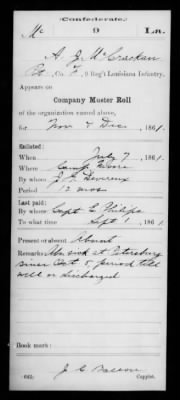 Confederate.
Mc 9 La.
A. J. McCrackan
Pvt, Co. F, 9 Reg't Louisiana Infantry.
Appears on
Company Muster Roll
of the organization named above,
for Nov & Dec, 1861.
Enlisted:
When July 7, 1861.
Where Camp Moore
By whom J. G. Devereux
Period 12 mos
Last paid:
By whom Capt E Philips
To what time Sept 1, 1861.
Present or absent Absent
Remarks: sick at Petersburg
since Oct 5, period till
well or discharged
Book mark:
(642)
Copyist.